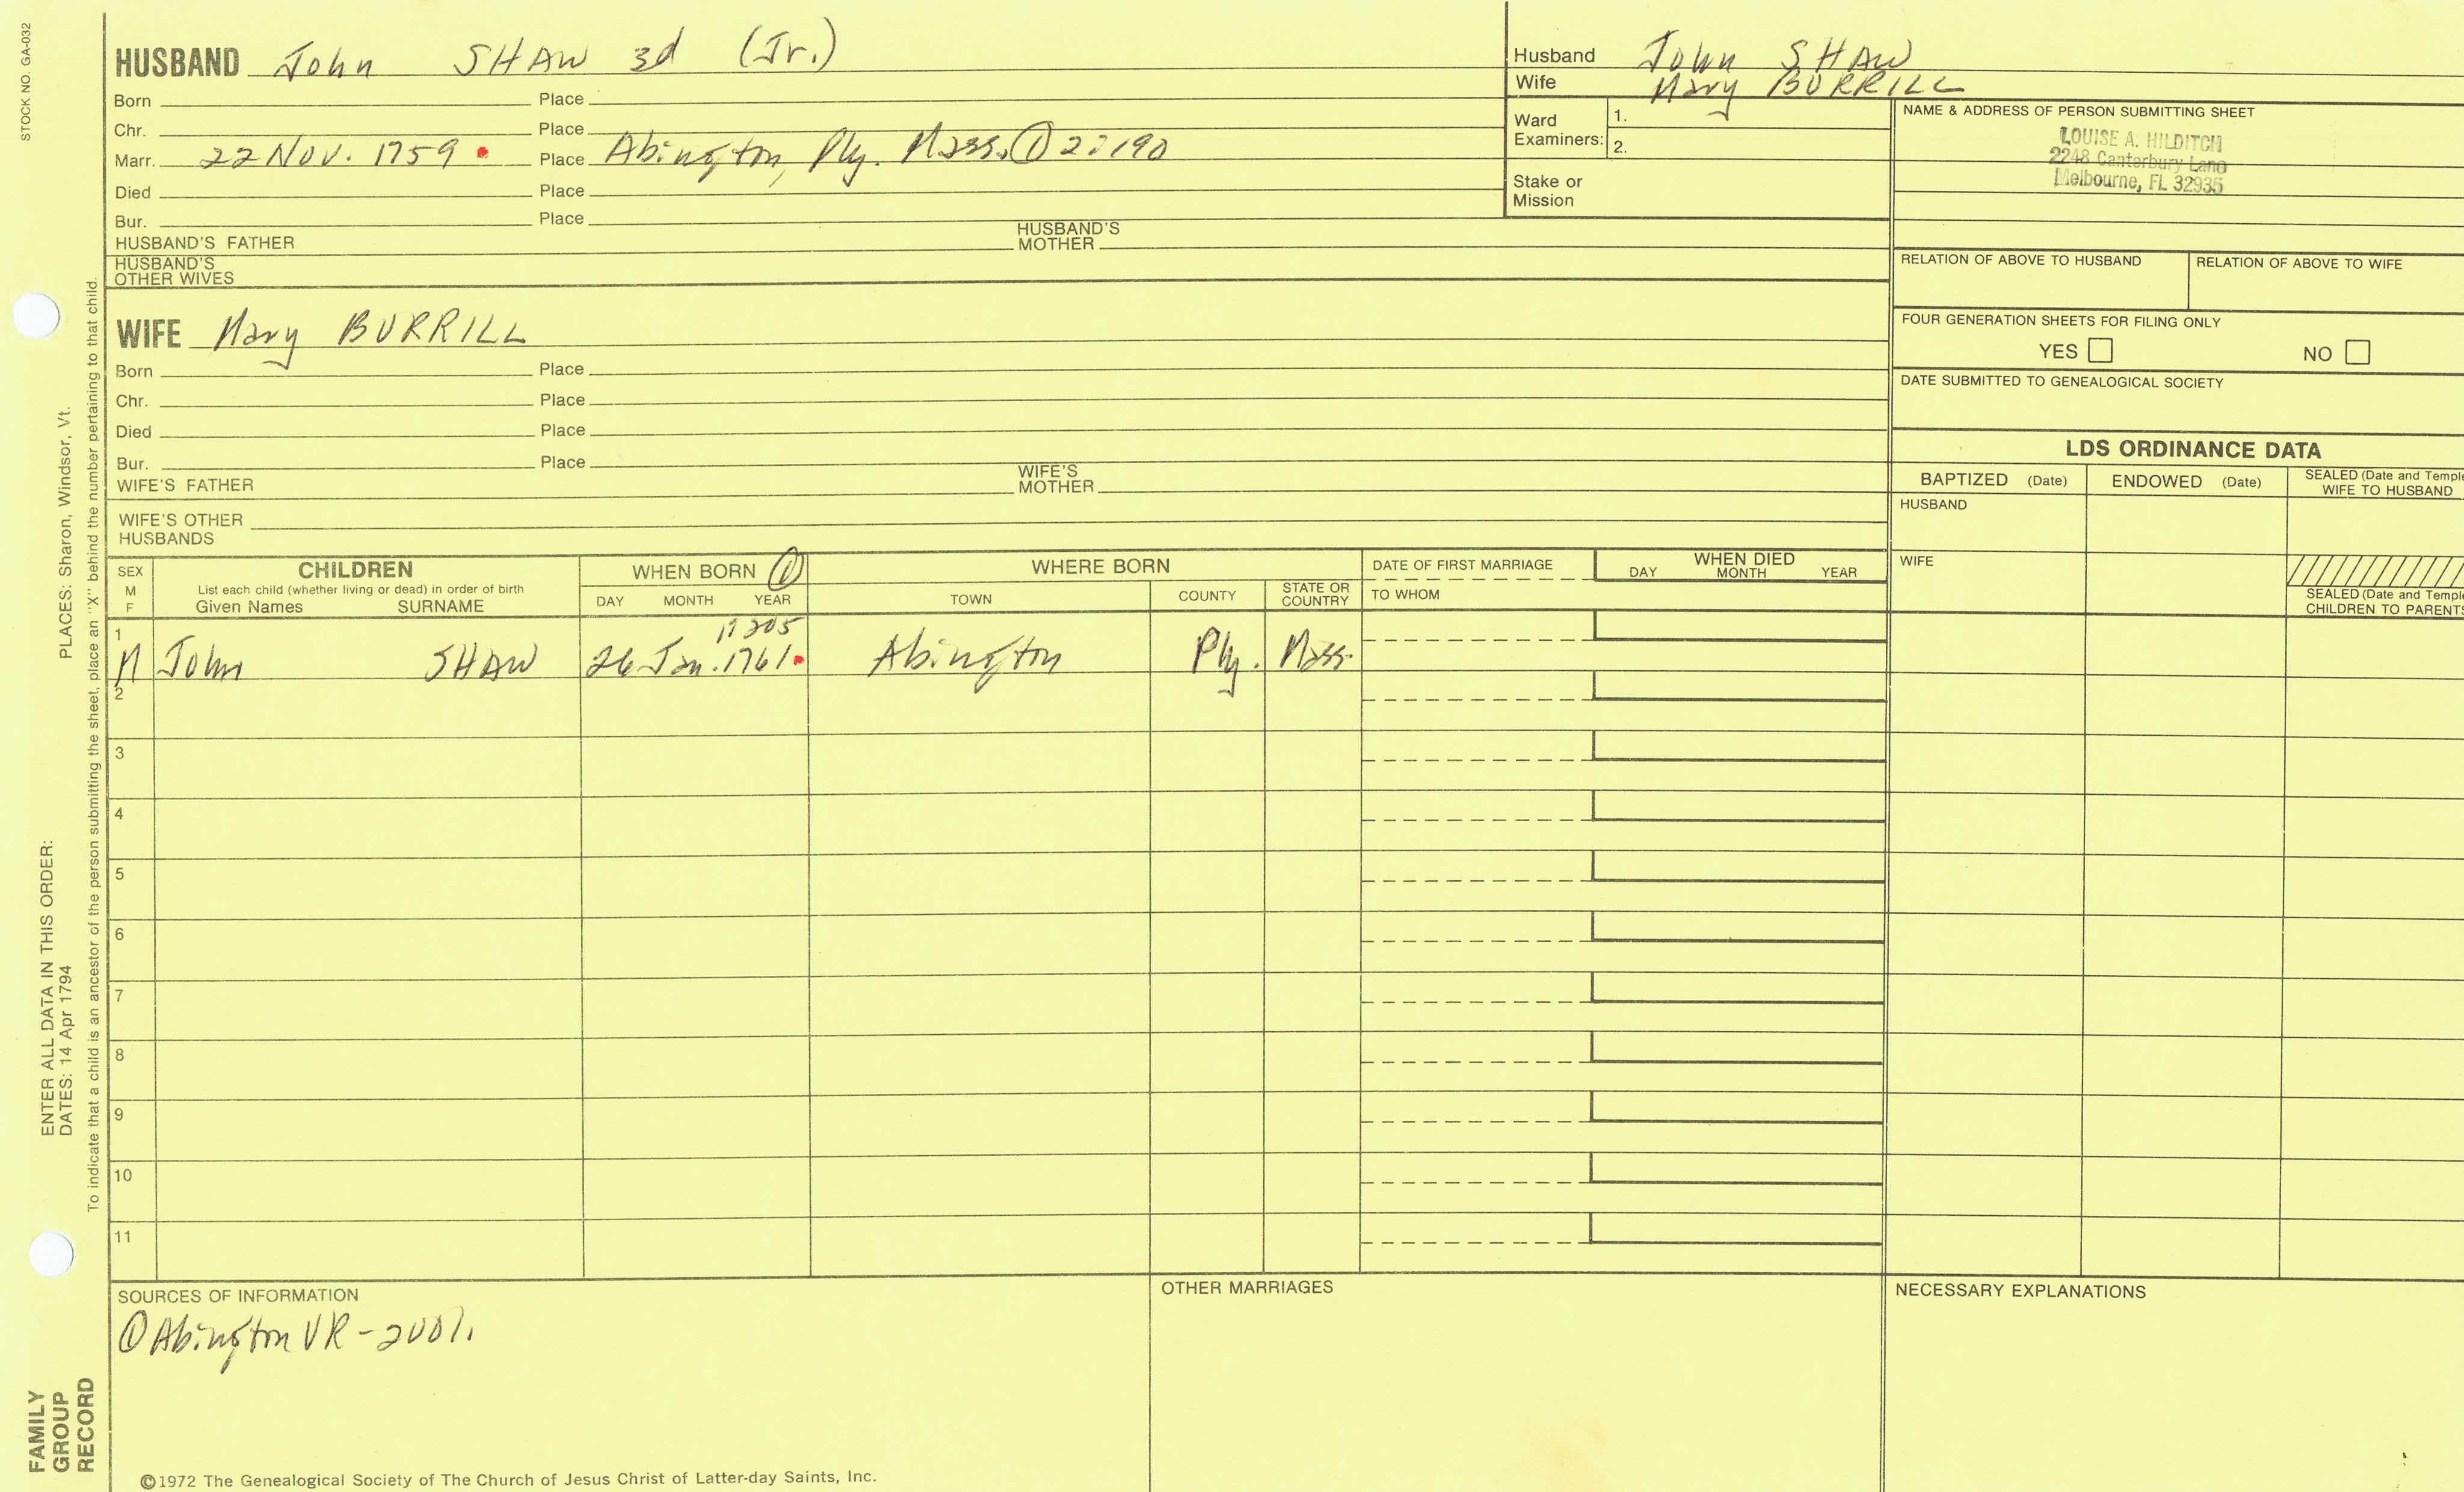 STOCK NO. GA-032
HUSBAND John SHAW 3d (Jr.)
Born Place
Chr. Place
Marr. 22 Nov. 1759 Place Abington, Ply. Mass. ①
Died Place
Bur. Place
HUSBAND'S FATHER HUSBAND'S MOTHER
HUSBAND'S OTHER WIVES
Husband John SHAW
Wife Mary BURRILL
Ward Examiners: 1.
2.
Stake or Mission
NAME & ADDRESS OF PERSON SUBMITTING SHEET
LOUISE A. HILDITCH
2248 Canterbury Lane
Melbourne, FL 32935
RELATION OF ABOVE TO HUSBAND RELATION OF ABOVE TO WIFE
FOUR GENERATION SHEETS FOR FILING ONLY
YES NO
DATE SUBMITTED TO GENEALOGICAL SOCIETY
WIFE Mary BURRILL
Born Place
Chr. Place
Died Place
Bur. Place
WIFE'S FATHER WIFE'S MOTHER
WIFE'S OTHER HUSBANDS
LDS ORDINANCE DATA
BAPTIZED (Date) ENDOWED (Date) SEALED (Date and Temple
WIFE TO HUSBAND
HUSBAND
WIFE
SEALED (Date and Temple
CHILDREN TO PARENTS
SEX
M
F
CHILDREN
List each child (whether living or dead) in order of birth
Given Names SURNAME
WHEN BORN ①
DAY MONTH YEAR
WHERE BORN
TOWN COUNTY STATE OR COUNTRY
DATE OF FIRST MARRIAGE
TO WHOM
WHEN DIED
DAY MONTH YEAR
1
M John SHAW 26 Jan. 1761 Abington Ply. Mass.
2
3
4
5
6
7
8
9
10
11
SOURCES OF INFORMATION
① Abington VR -
OTHER MARRIAGES
NECESSARY EXPLANATIONS
©1972 The Genealogical Society of The Church of Jesus Christ of Latter-day Saints, Inc.
ENTER ALL DATA IN THIS ORDER:
DATES: 14 Apr 1794 PLACES: Sharon, Windsor, Vt.
To indicate that a child is an ancestor of the person submitting the sheet, place an "X" behind the number pertaining to that child.
FAMILY
GROUP
RECORD